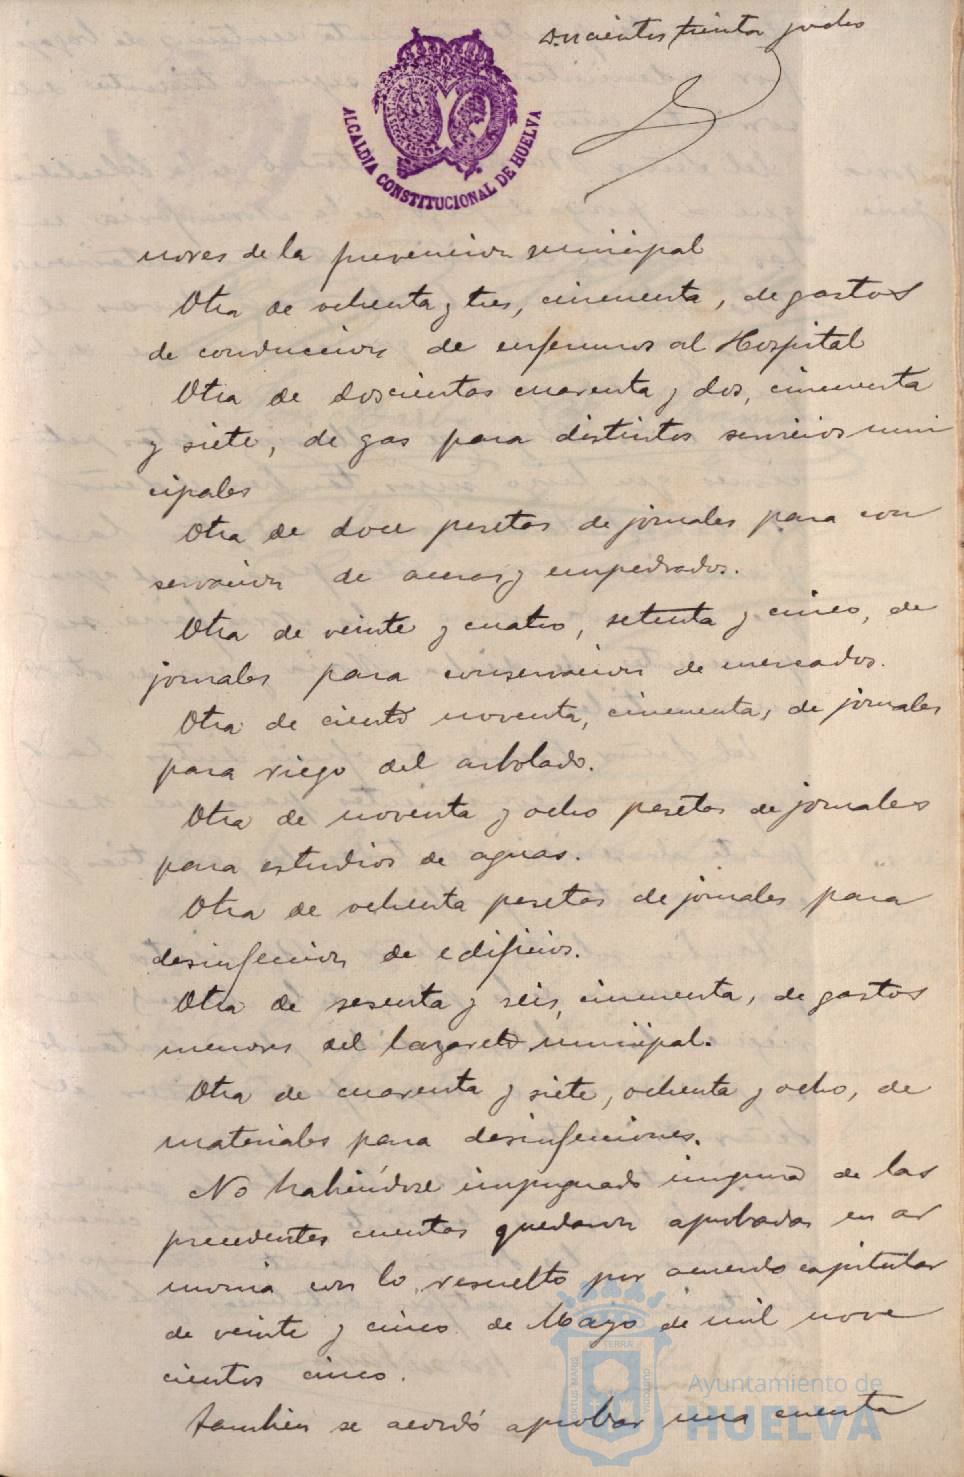 Doscientos treinta y ocho
ALCALDIA CONSTITUCIONAL DE HUELVA
nores de la prevencion municipal
Otra de ochenta y tres, cincuenta, de gastos
de conduccion de enfermos al Hospital
Otra de doscientas cuarenta y dos, cincuenta
y siete, de gas para distintos servicios muni
cipales
Otra de doce pesetas de jornales para con
servacion de aceras y empedrados.
Otra de veinte y cuatro, setenta y cinco, de
jornales para conservacion de mercados.
Otra de ciento noventa, cincuenta, de jornales
para riego del arbolado.
Otra de noventa y ocho pesetas de jornales
para estudios de aguas.
Otra de ochenta pesetas de jornales para
desinfeccion de edificios.
Otra de sesenta y seis, cincuenta, de gastos
menores del lazareto municipal.
Otra de cuarenta y siete, ochenta y ocho, de
materiales para desinfecciones.
No habiéndose impugnado ninguna de las
precedentes cuentas quedaron aprobadas en ar
monia con lo resuelto por acuerdo capitular
de veinte y cinco de Mayo de mil nove
cientos cinco.
Tambien se acordó aprobar una cuenta
Ayuntamiento de
HUELVA